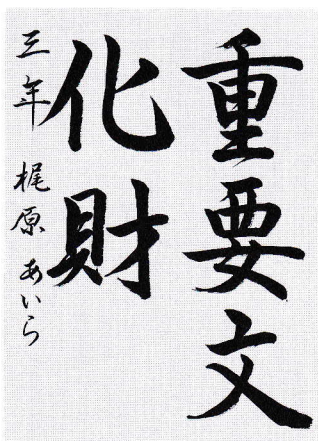 重要文
化財
三年 梶原 あいら